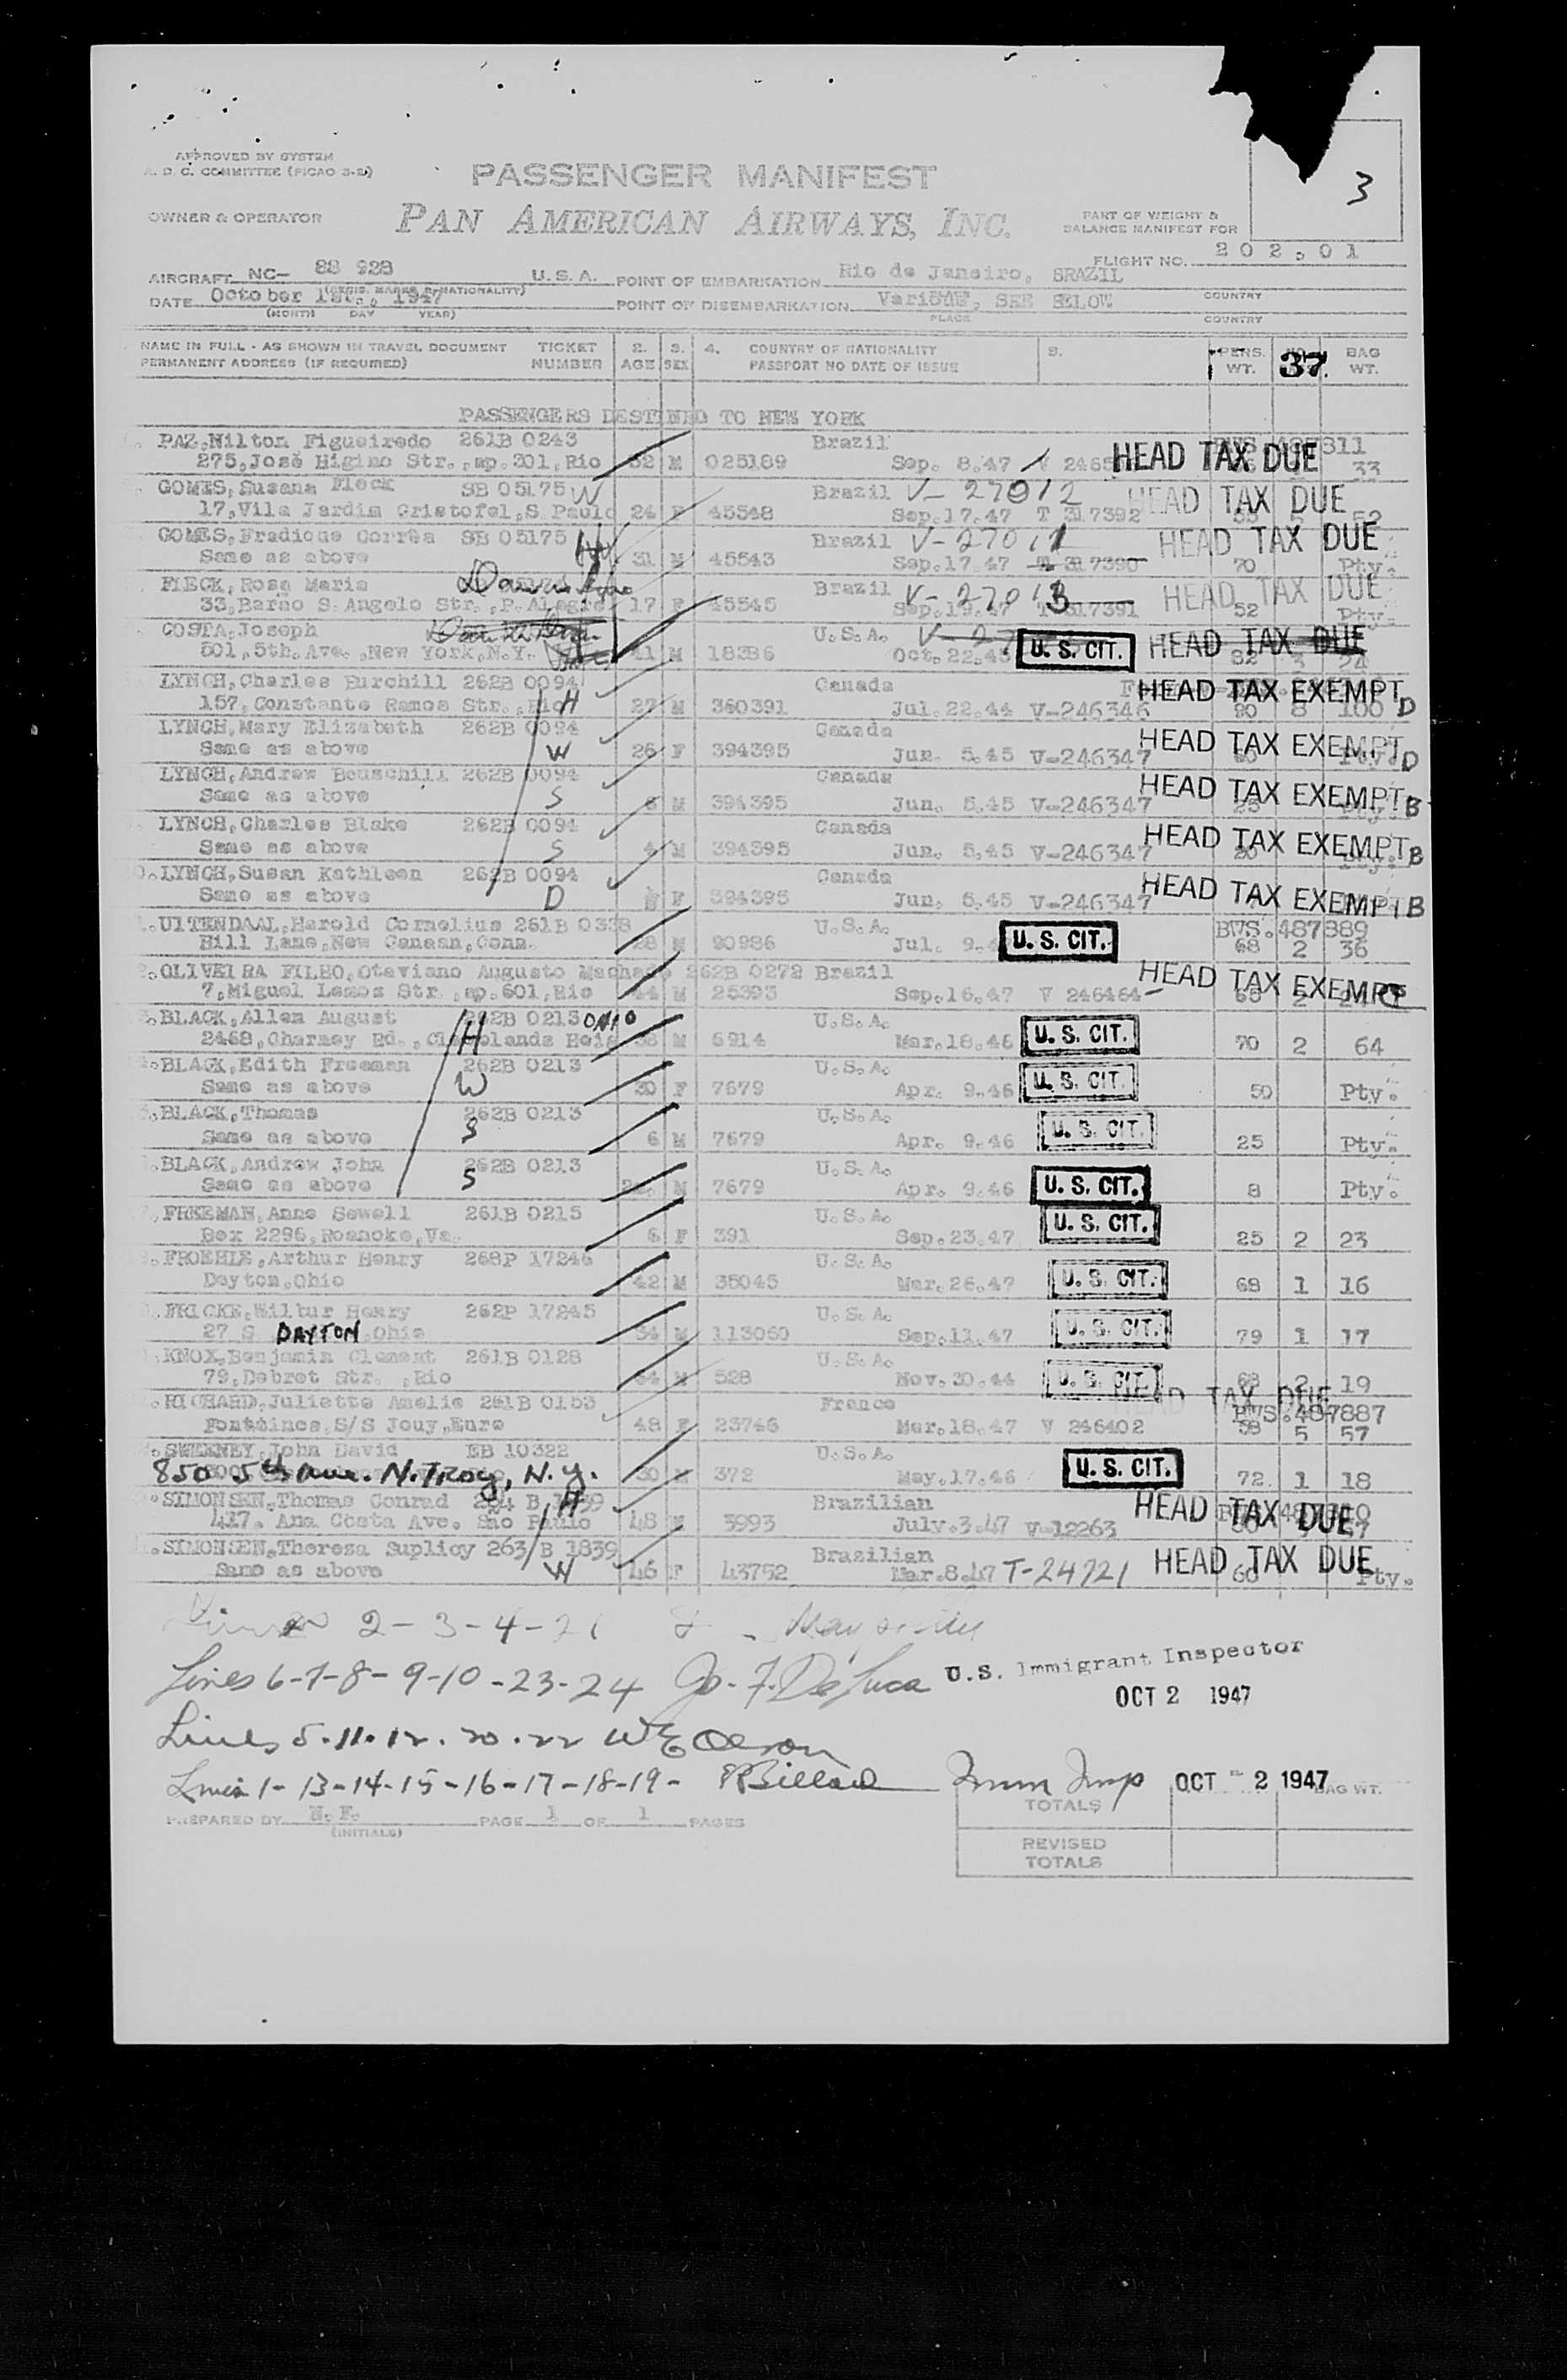 3
APPROVED BY SYSTEM
A. O C. COMMITTEE (PICAO 3-2)
PASSENGER MANIFEST
OWNER & OPERATOR
PAN AMERICAN AIRWAYS, INC.
PART OF WEIGHT &
BALANCE MANIFEST FOR
FLIGHT NO. 202.01
AIRCRAFT NC- 88 928 U.S.A. POINT OF EMBARKATION Rio de Janeiro, BRAZIL
(REGIS. MARKS & NATIONALITY) COUNTRY
DATE October 1st., 1947 POINT OF DISEMBARKATION Various, SEE BELOW
(MONTH DAY YEAR) PLACE COUNTRY
NAME IN FULL - AS SHOWN IN TRAVEL DOCUMENT TICKET 2. 3. 4. COUNTRY OF NATIONALITY 5. PERS. BAG
PERMANENT ADDRESS (IF REQUIRED) NUMBER AGE SEX PASSPORT NO DATE OF ISSUE WT. 37. WT.
PASSENGERS DESTINED TO NEW YORK
PAZ,Nilton Figueiredo 261B 0243 Brazil
275,José Higino Str.,ap.301,Rio 32 M 025189 Sep. 8.47 HEAD TAX DUE 33
GOMES,Susana Fleck SB 05175 W Brazil V-27012
17,Vila Jardim Cristofel,S.Paulo 24 F 45548 Sep.17.47 T 317392 HEAD TAX DUE 52
GOMES,Fradique Corrêa SB 05175 H Brazil V-27011
Same as above 31 M 45543 Sep.17.47 T 317390 HEAD TAX DUE 70 Pty.
FLECK,Rosa Maria Brazil V-27013
33,Barao S.Angelo Str.,P.Alegre 17 F 45545 Sep.19.47 T 317391 HEAD TAX DUE 52 Pty.
COSTA,Joseph U.S.A.
501,5th.Ave.,New York,N.Y. 41 M 18386 Oct.22.45 U. S. CIT. HEAD TAX DUE 82 3 24
LYNCH,Charles Burchill 262B 0094 Canada
157,Constante Ramos Str.,Rio H 27 M 360391 Jul.22.44 V-246346 HEAD TAX EXEMPT D 90 8 100
LYNCH,Mary Elizabeth 262B 0094 Canada
Same as above W 26 F 394395 Jun. 5.45 V-246347 HEAD TAX EXEMPT D Pty.
LYNCH,Andrew 262B 0094 Canada
Same as above S M 394395 Jun. 5.45 V-246347 HEAD TAX EXEMPT B 25 Pty.
LYNCH,Charles Blake 262B 0094 Canada
Same as above S 4 M 394395 Jun. 5.45 V-246347 HEAD TAX EXEMPT B 20 Pty.
LYNCH,Susan Kathleen 262B 0094 Canada
Same as above D F 394395 Jun. 5.45 V-246347 HEAD TAX EXEMPT B
UITENDAAL,Harold Cornelius 261B 0338 U.S.A. BWS.487889
Hill Lane,New Canaan,Conn. 28 M 90986 Jul. 9. U. S. CIT. 68 2 36
OLIVEIRA FILHO,Otaviano Augusto Machado 262B 0272 Brazil
7,Miguel Lemos Str.,ap.601,Rio 44 M 25393 Sep.16.47 V 246464 HEAD TAX EXEMPT 65 2
BLACK,Allen August 262B 0213 OHIO U.S.A.
2468,Charney Rd.,Clevelands Heig H 38 M 6914 Mar.18.46 U. S. CIT. 70 2 64
BLACK,Edith Freeman 262B 0213 U.S.A.
Same as above W 30 F 7679 Apr. 9.46 U. S. CIT. 50 Pty.
BLACK,Thomas 262B 0213 U.S.A.
Same as above S 6 M 7679 Apr. 9.46 U. S. CIT. 25 Pty.
BLACK,Andrew John 262B 0213 U.S.A.
Same as above S M 7679 Apr. 9.46 U. S. CIT. 8 Pty.
FREEMAN,Anne Sewell 261B 0215 U.S.A.
Box 2296,Roanoke,Va. 6 F 391 Sep.23.47 U. S. CIT. 25 2 23
FROEHLE,Arthur Henry 268P 17246 U.S.A.
Dayton,Ohio 42 M 35045 Mar.26.47 U. S. CIT. 68 1 16
FRICKE,Wilbur Henry 262P 17245 U.S.A.
27 S DAYTON,Ohio 34 M 113060 Sep.11.47 U. S. CIT. 79 1 17
KNOX,Benjamin Clement 261B 0128 U.S.A.
79,Debret Str.,Rio 64 M 528 Nov.30.44 U. S. CIT. 68 2 19
RICHARD,Juliette Amelie 261B 0153 France HEAD TAX DUE BWS.487887
Fontaines,S/S Jouy,Eure 48 F 23746 Mar.18.47 V 246402 58 5 57
SWEENEY,John David EB 10322 U.S.A.
850 5th Ave. N. Troy, N.Y. 30 M 372 May.17.46 U. S. CIT. 72 1 18
SIMONSEN,Thomas Conrad 264 B 1839 H Brazilian
417. Ana Costa Ave. São Paulo 48 M 3993 July.3.47 V-12263 HEAD TAX DUE
SIMONSEN,Theresa Suplicy 263 B 1839 Brazilian
Same as above W 46 F 43752 Mar.8.47 T-24721 HEAD TAX DUE 60 Pty.
Lines 2-3-4-21
Lines 6-7-8-9-10-23-24 Jo. F. De Luca U.S. Immigrant Inspector
OCT 2 1947
Lines 5.11.12.20.22 WE Olson
Lines 1-13-14-15-16-17-18-19- Billard Imm Insp OCT 2 1947 BAG WT.
TOTALS
PREPARED BY N.F. PAGE 1 OF 1 PAGES
(INITIALS)
REVISED
TOTALS